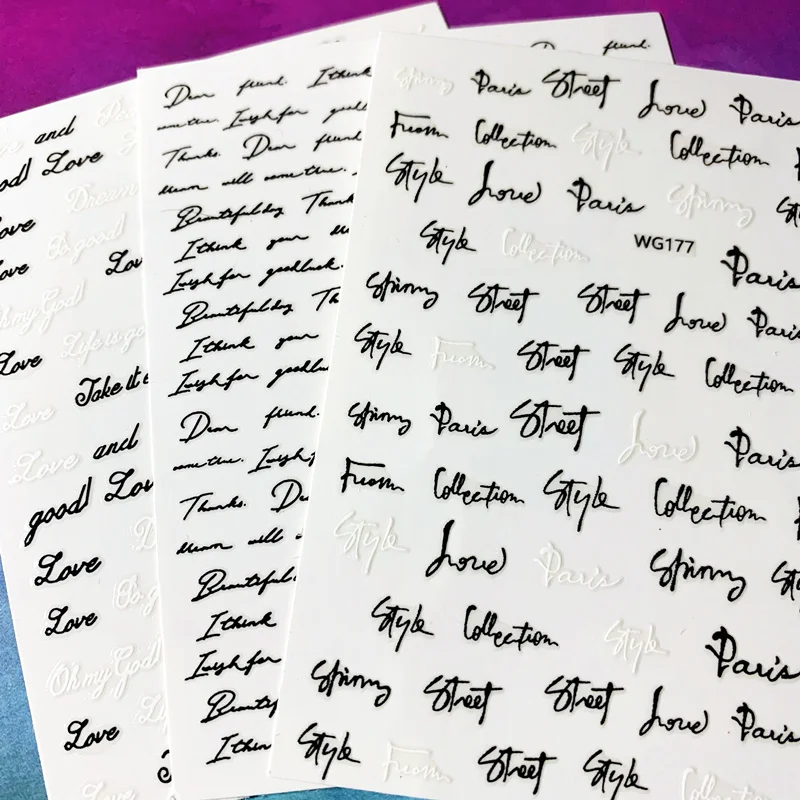 and Pe
good! Love
Dream
Love So good!
Love Lov
Oh my God!
Love Life is go
Love Take it e
Love and
good! Lov
Love D
Love So g
Oh my God!
Love Li
friend.
Dear friend. I think
come true. Laugh for good
Thanks. Dear friend
dream will come true.
Beautiful day Thank
I think your
Laugh for goodluck.
Beautiful day Th
I think your
Laugh for goodlu
Dear friend.
come true. Laugh f
Thanks. De
dream will
Beautiful
I think
Laugh for
Beautif
I thin
Spinny Paris Street Love Paris
From Collection Style Collection
Style Love Paris Spinny St
Style Collection WG177 Paris
Spinny Street Street Love Paris
Style From Street Style Collection
Spinny Paris Street Love Paris
From Collection Style Collection
Style Love Paris Spinny St
Style Collection Style Paris
Spinny Street Street Love Paris
Style From Street Style Collection